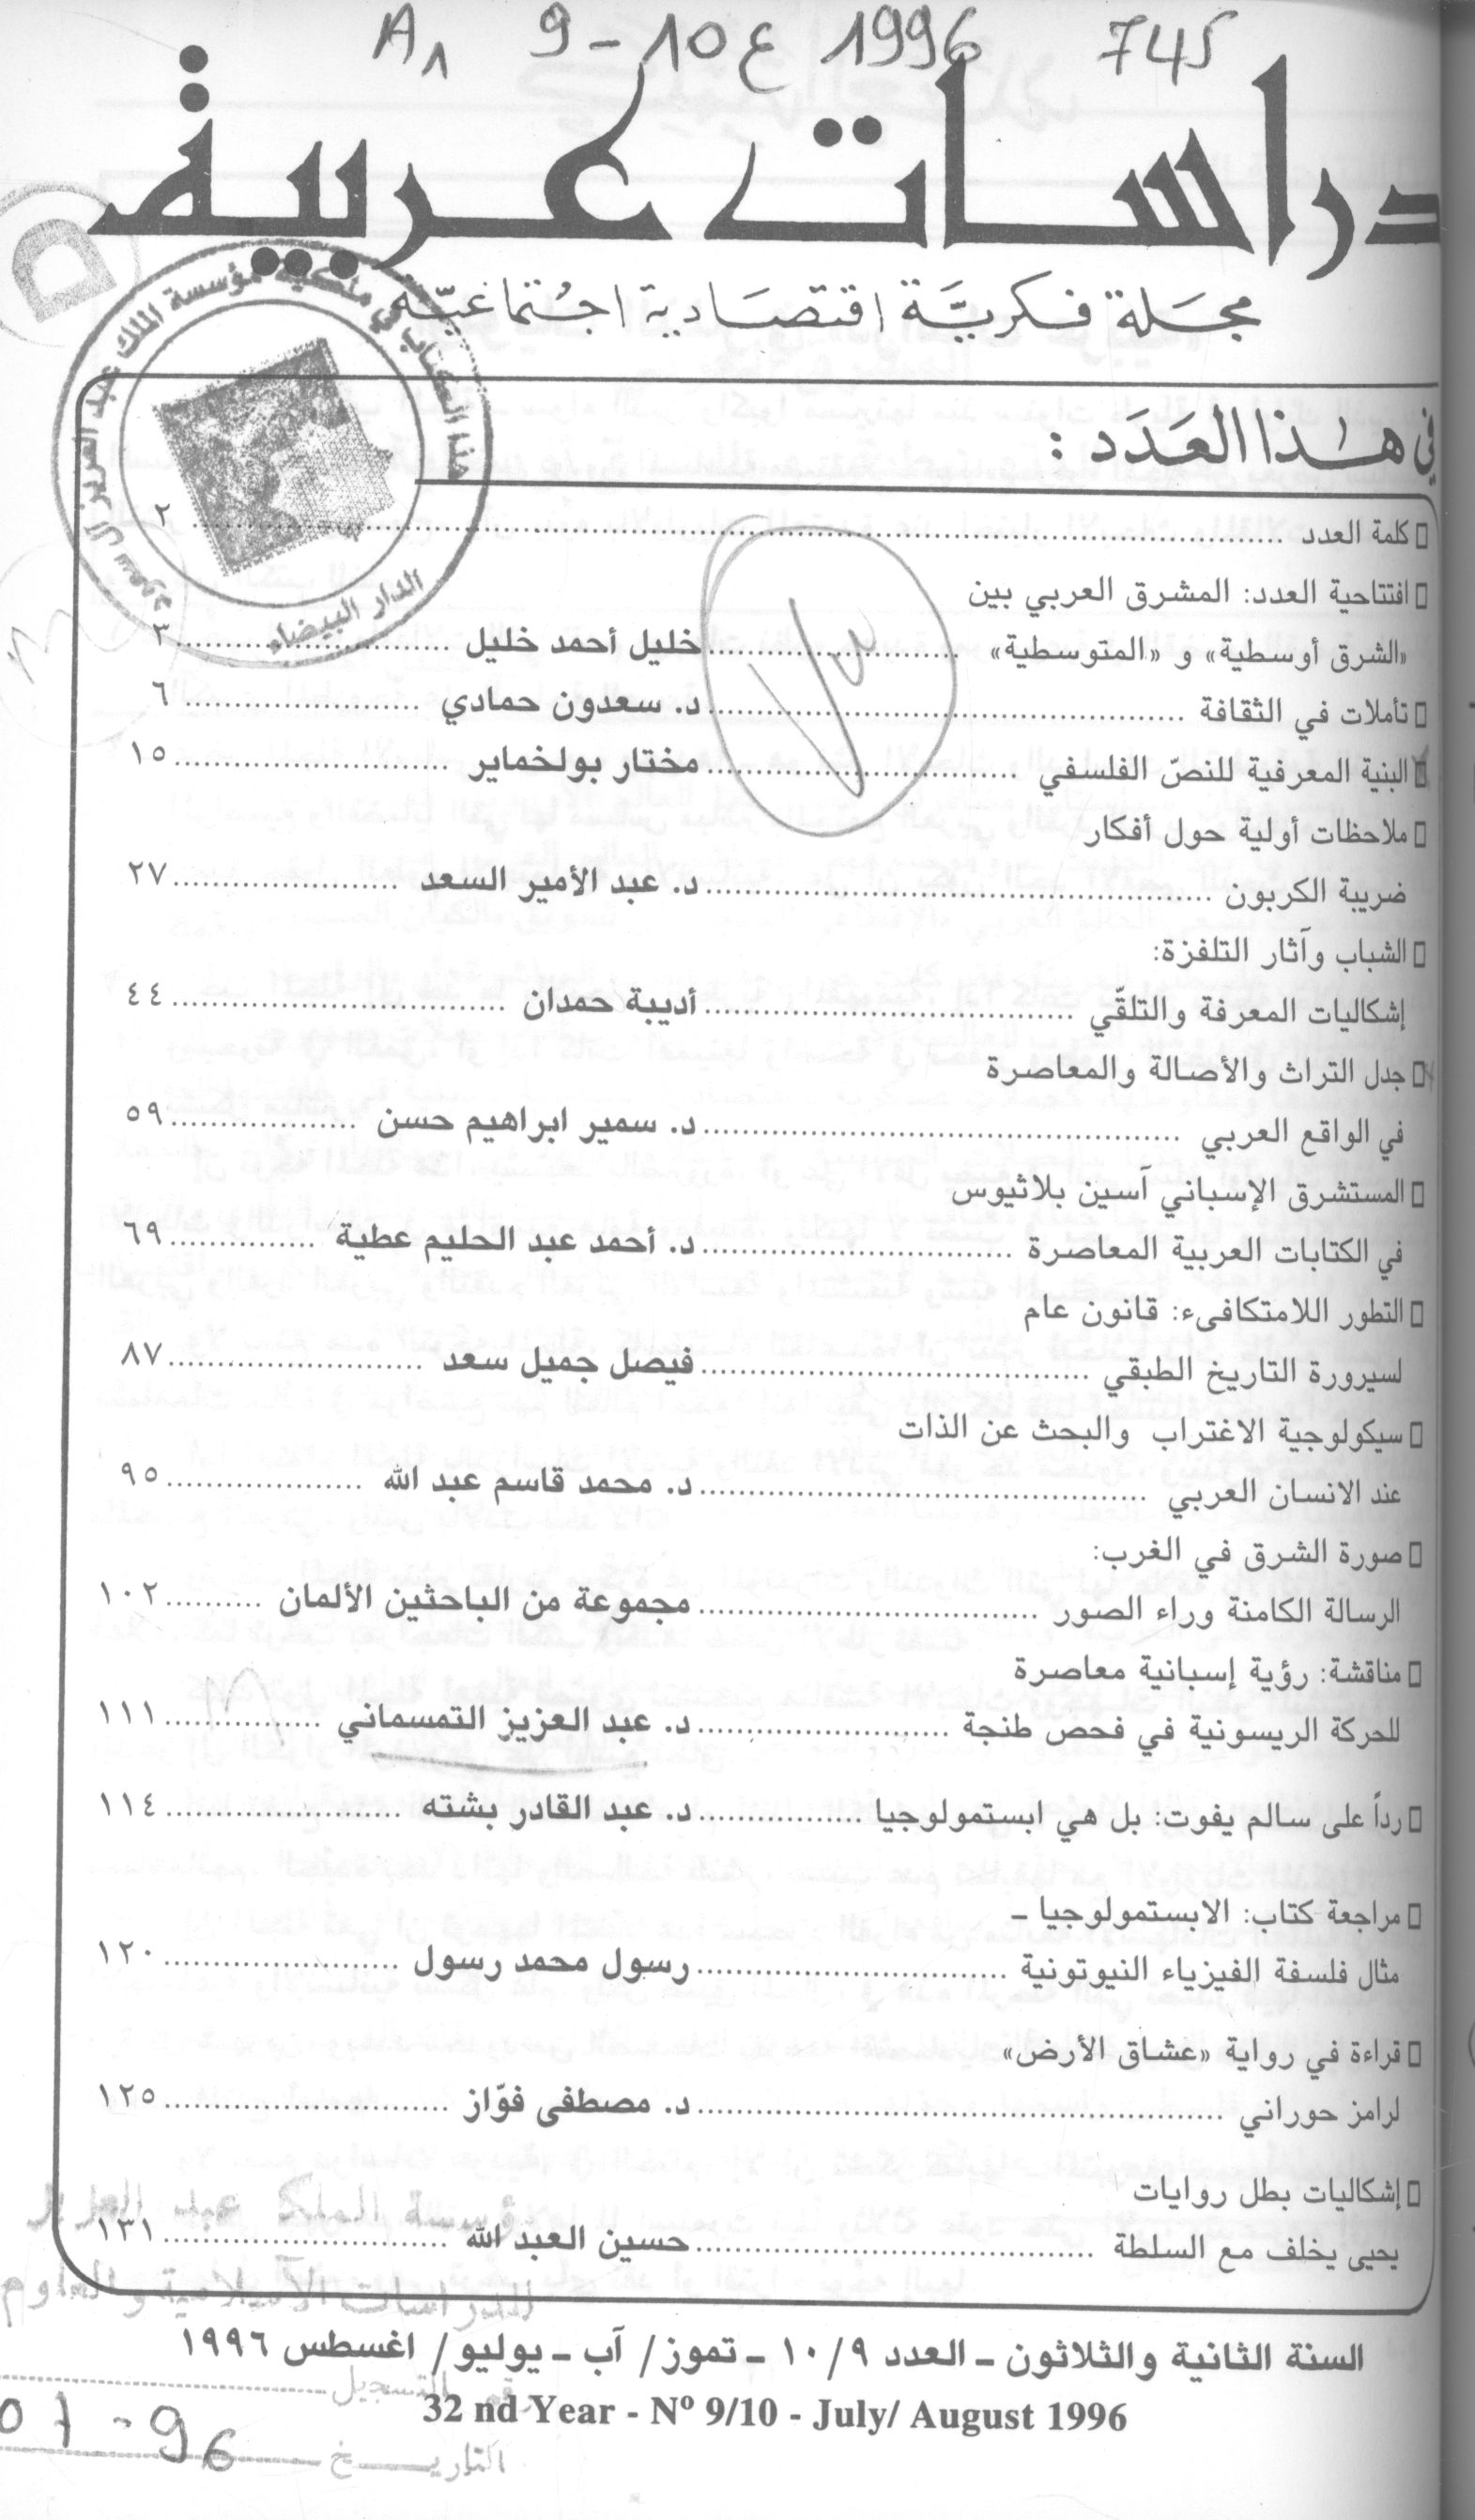 A1 9-10ع 1996 745
دراسات عربية
مجلة فكرية اقتصادية اجتماعية
هذا الكتاب في ملكية مؤسسة الملك عبد العزيز آل سعود
الدار البيضاء
في هذا العدد :
كلمة العدد ........ ٢
افتتاحية العدد: المشرق العربي بين
«الشرق أوسطية» و «المتوسطية» ........ خليل أحمد خليل ........ ٣
تأملات في الثقافة ........ د. سعدون حمادي ........ ٦
البنية المعرفية للنصّ الفلسفي ........ مختار بولخماير ........ ١٥
ملاحظات أولية حول أفكار
ضريبة الكربون ........ د. عبد الأمير السعد ........ ٢٧
الشباب وآثار التلفزة:
إشكاليات المعرفة والتلقّي ........ أديبة حمدان ........ ٤٤
جدل التراث والأصالة والمعاصرة
في الواقع العربي ........ د. سمير ابراهيم حسن ........ ٥٩
المستشرق الإسباني آسين بلاثيوس
في الكتابات العربية المعاصرة ........ د. أحمد عبد الحليم عطية ........ ٦٩
التطور اللامتكافىء: قانون عام
لسيرورة التاريخ الطبقي ........ فيصل جميل سعد ........ ٨٧
سيكولوجية الاغتراب والبحث عن الذات
عند الانسان العربي ........ د. محمد قاسم عبد الله ........ ٩٥
صورة الشرق في الغرب:
الرسالة الكامنة وراء الصور ........ مجموعة من الباحثين الألمان ........ ١٠٢
مناقشة: رؤية إسبانية معاصرة
للحركة الريسونية في فحص طنجة ........ د. عبد العزيز التمسماني ........ ١١١
رداً على سالم يفوت: بل هي ابستمولوجيا ........ د. عبد القادر بشته ........ ١١٤
مراجعة كتاب: الابستمولوجيا ـ
مثال فلسفة الفيزياء النيوتونية ........ رسول محمد رسول ........ ١٢٠
قراءة في رواية «عشاق الأرض»
لرامز حوراني ........ د. مصطفى فوّاز ........ ١٢٥
إشكاليات بطل روايات
يحيى يخلف مع السلطة ........ حسين العبد الله ........ ١٣١
مؤسسة الملك عبد العزيز
للدراسات الاسلامية والعلوم
السنة الثانية والثلاثون ـ العدد ١٠/٩ ـ تموز/ آب ـ يوليو/ اغسطس ١٩٩٦
رقم التسجيل
32 nd Year - Nº 9/10 - July/ August 1996
التاريـــخ 01-96